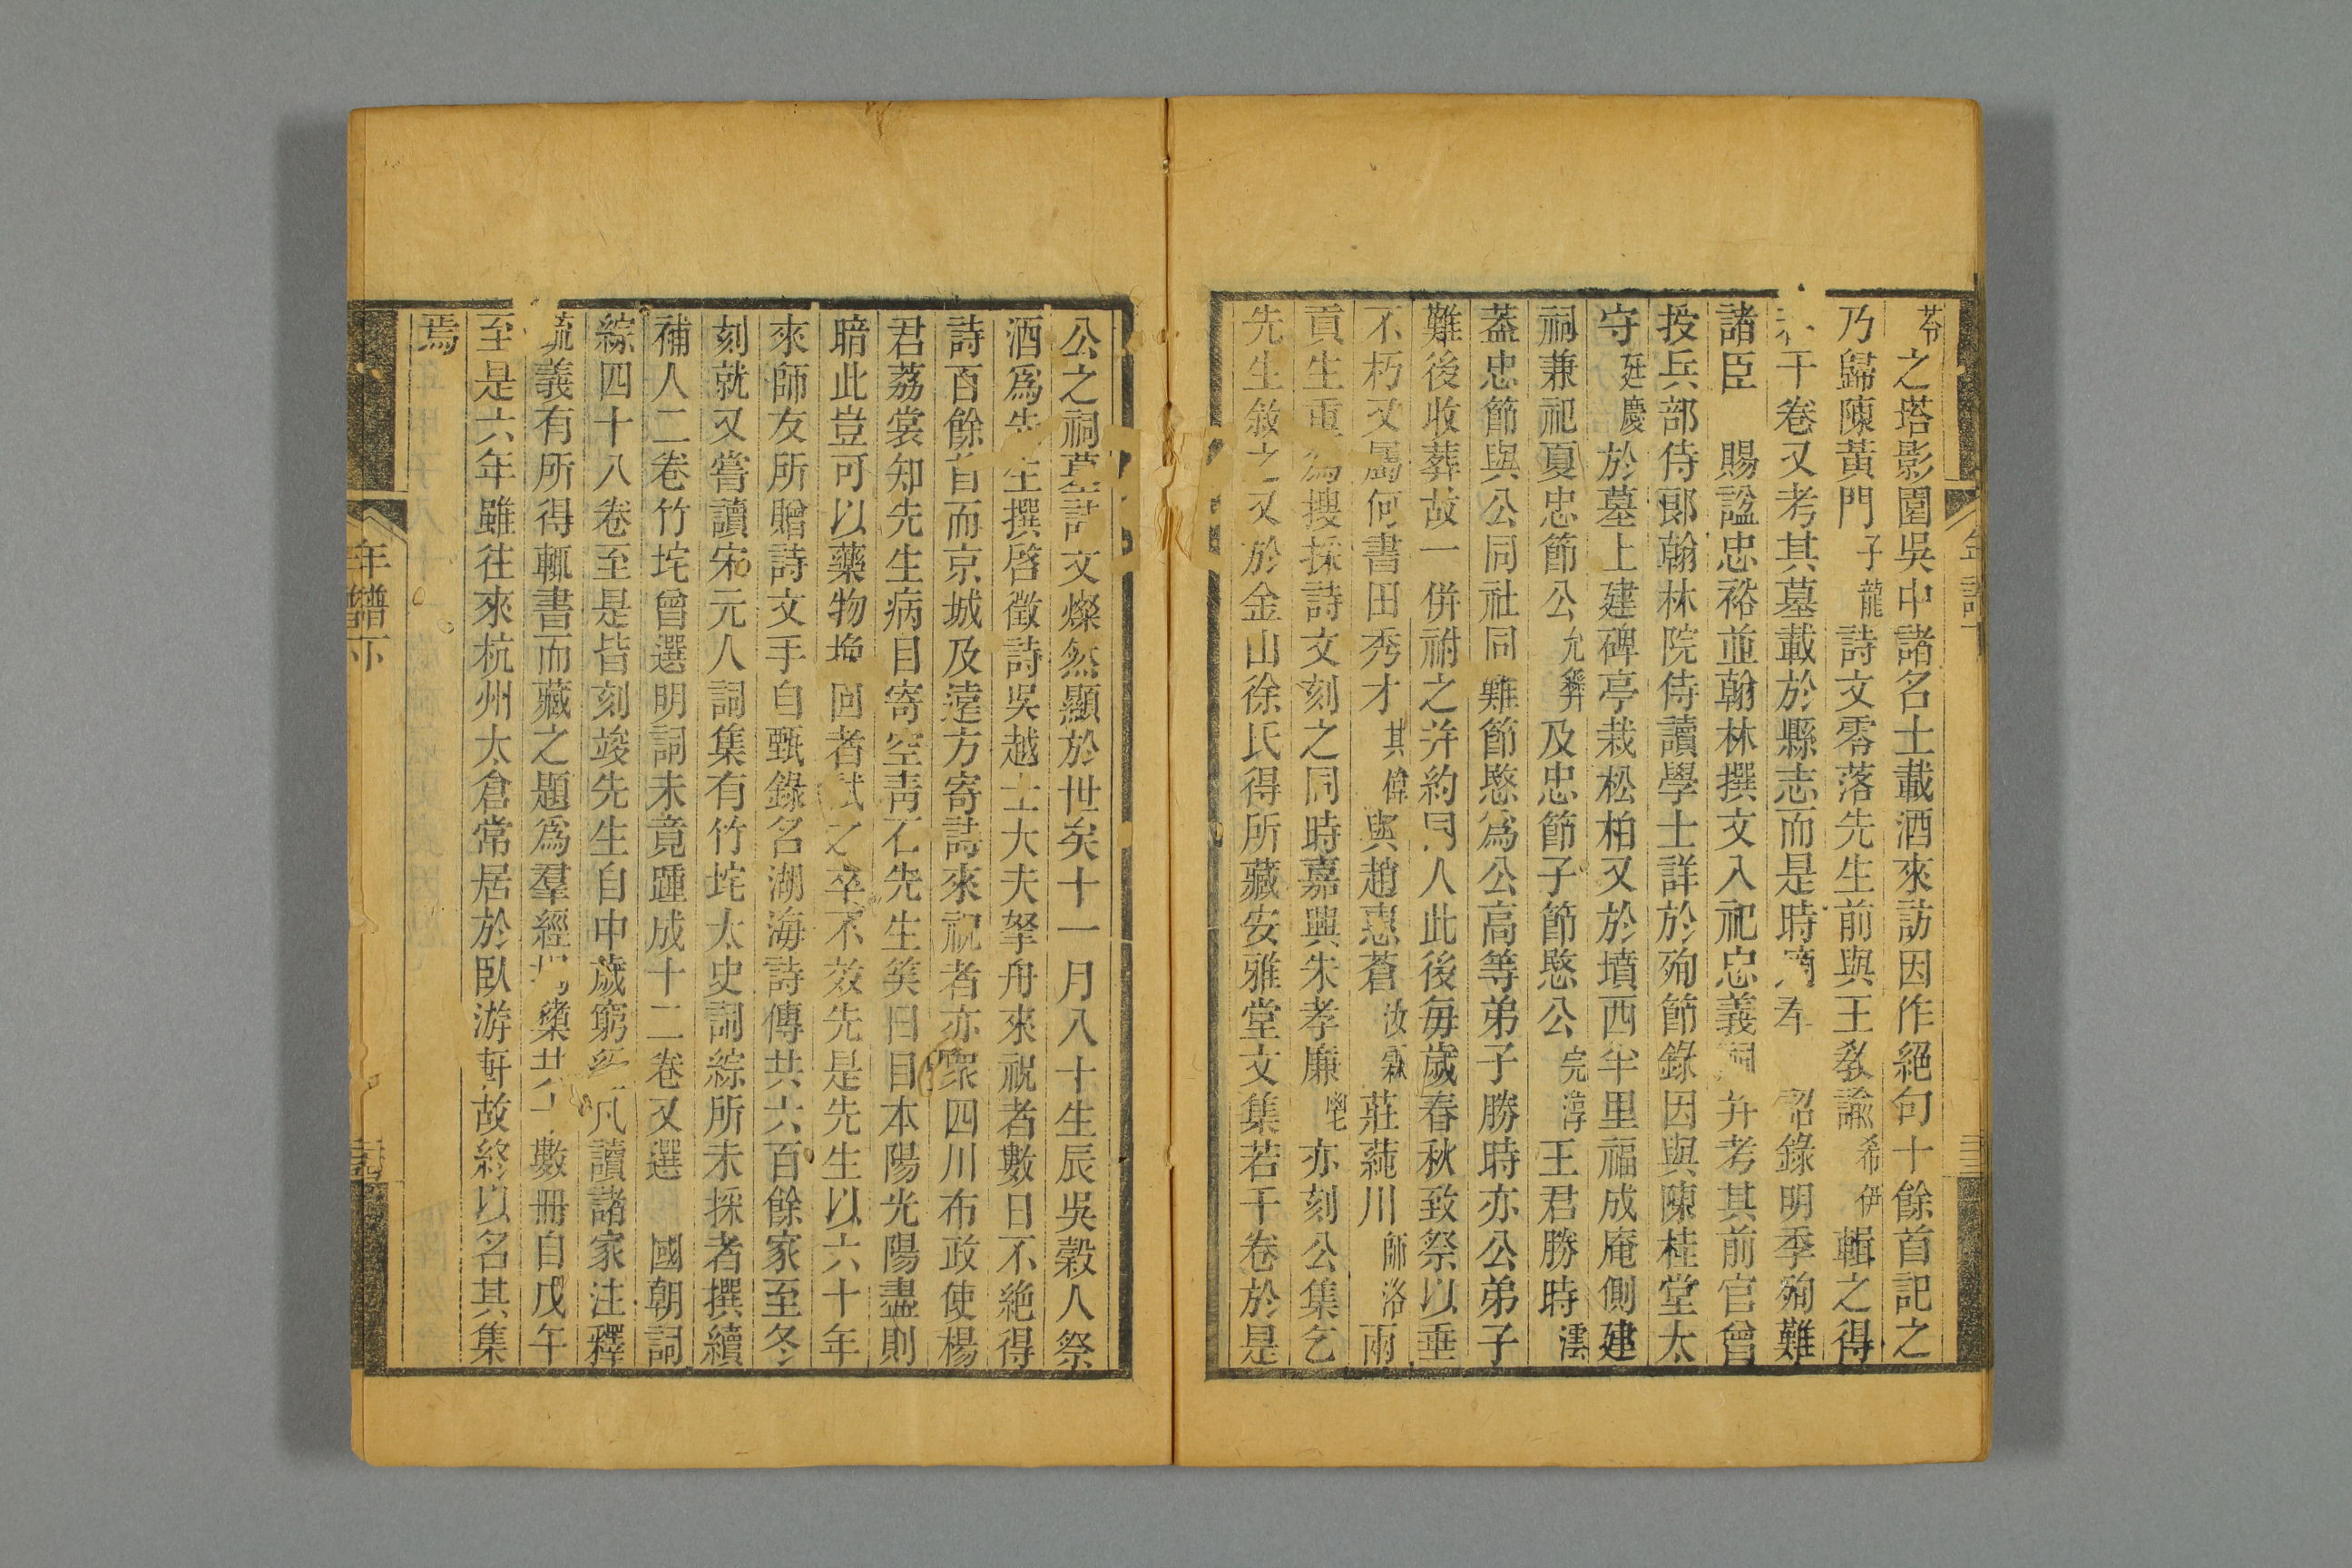 苓之塔影園吳中諸名士載酒來訪因作絕句十餘首記之
乃歸陳黃門子龍詩文零落先生前與王教諭希伊輯之得
干卷又考其墓載於縣志而是時 奉 詔錄明季殉難
諸臣 賜諡忠裕並翰林撰文入祀忠義祠幷考其前官曾
授兵部侍郎翰林院侍讀學士詳於殉節錄因與陳桂堂太
守廷慶於墓上建碑亭栽松柏又於墳西半里福成庵側建
祠兼祀夏忠節公允彝及忠節子節愍公完淳王君勝時澐
蓋忠節與公同社同難節愍爲公高等弟子勝時亦公弟子
難後收葬故一併祔之幷約同人此後每歲春秋致祭以垂
不朽又屬何書田秀才其偉與趙蒼汝霖莊蒓川師洛兩
貢生重爲搜採詩文刻之同時嘉興朱孝廉亦刻公集乞
先生敘之又於金山徐氏得所藏安雅堂文集若干卷於是
公之祠墓詩文燦然顯於世矣十一月八十生辰吳穀人祭
酒爲先生撰啓徵詩吳越士大夫拏舟來祝者數日不絕得
詩百餘首而京城及遠方寄詩來祝者亦衆四川布政使楊
君荔裳知先生病目寄空靑石先生笑曰目本陽光陽盡則
暗此豈可以藥物挽回者試之卒不效先是先生以六十年
來師友所贈詩文手自甄錄名湖海詩傳共六百餘家至冬
刻就又嘗讀宋元人詞集有竹垞太史詞綜所未採者撰續
補人二卷竹垞曾選明詞未竟踵成十二卷又選 國朝詞
綜四十八卷至是皆刻竣先生自中歲窮經凡讀諸家注釋
疏義有所得輒書而藏之題爲羣經揭櫫共十數冊自戊午
至是六年雖往來杭州太倉常居於臥游軒故終以名其集
焉
年譜下